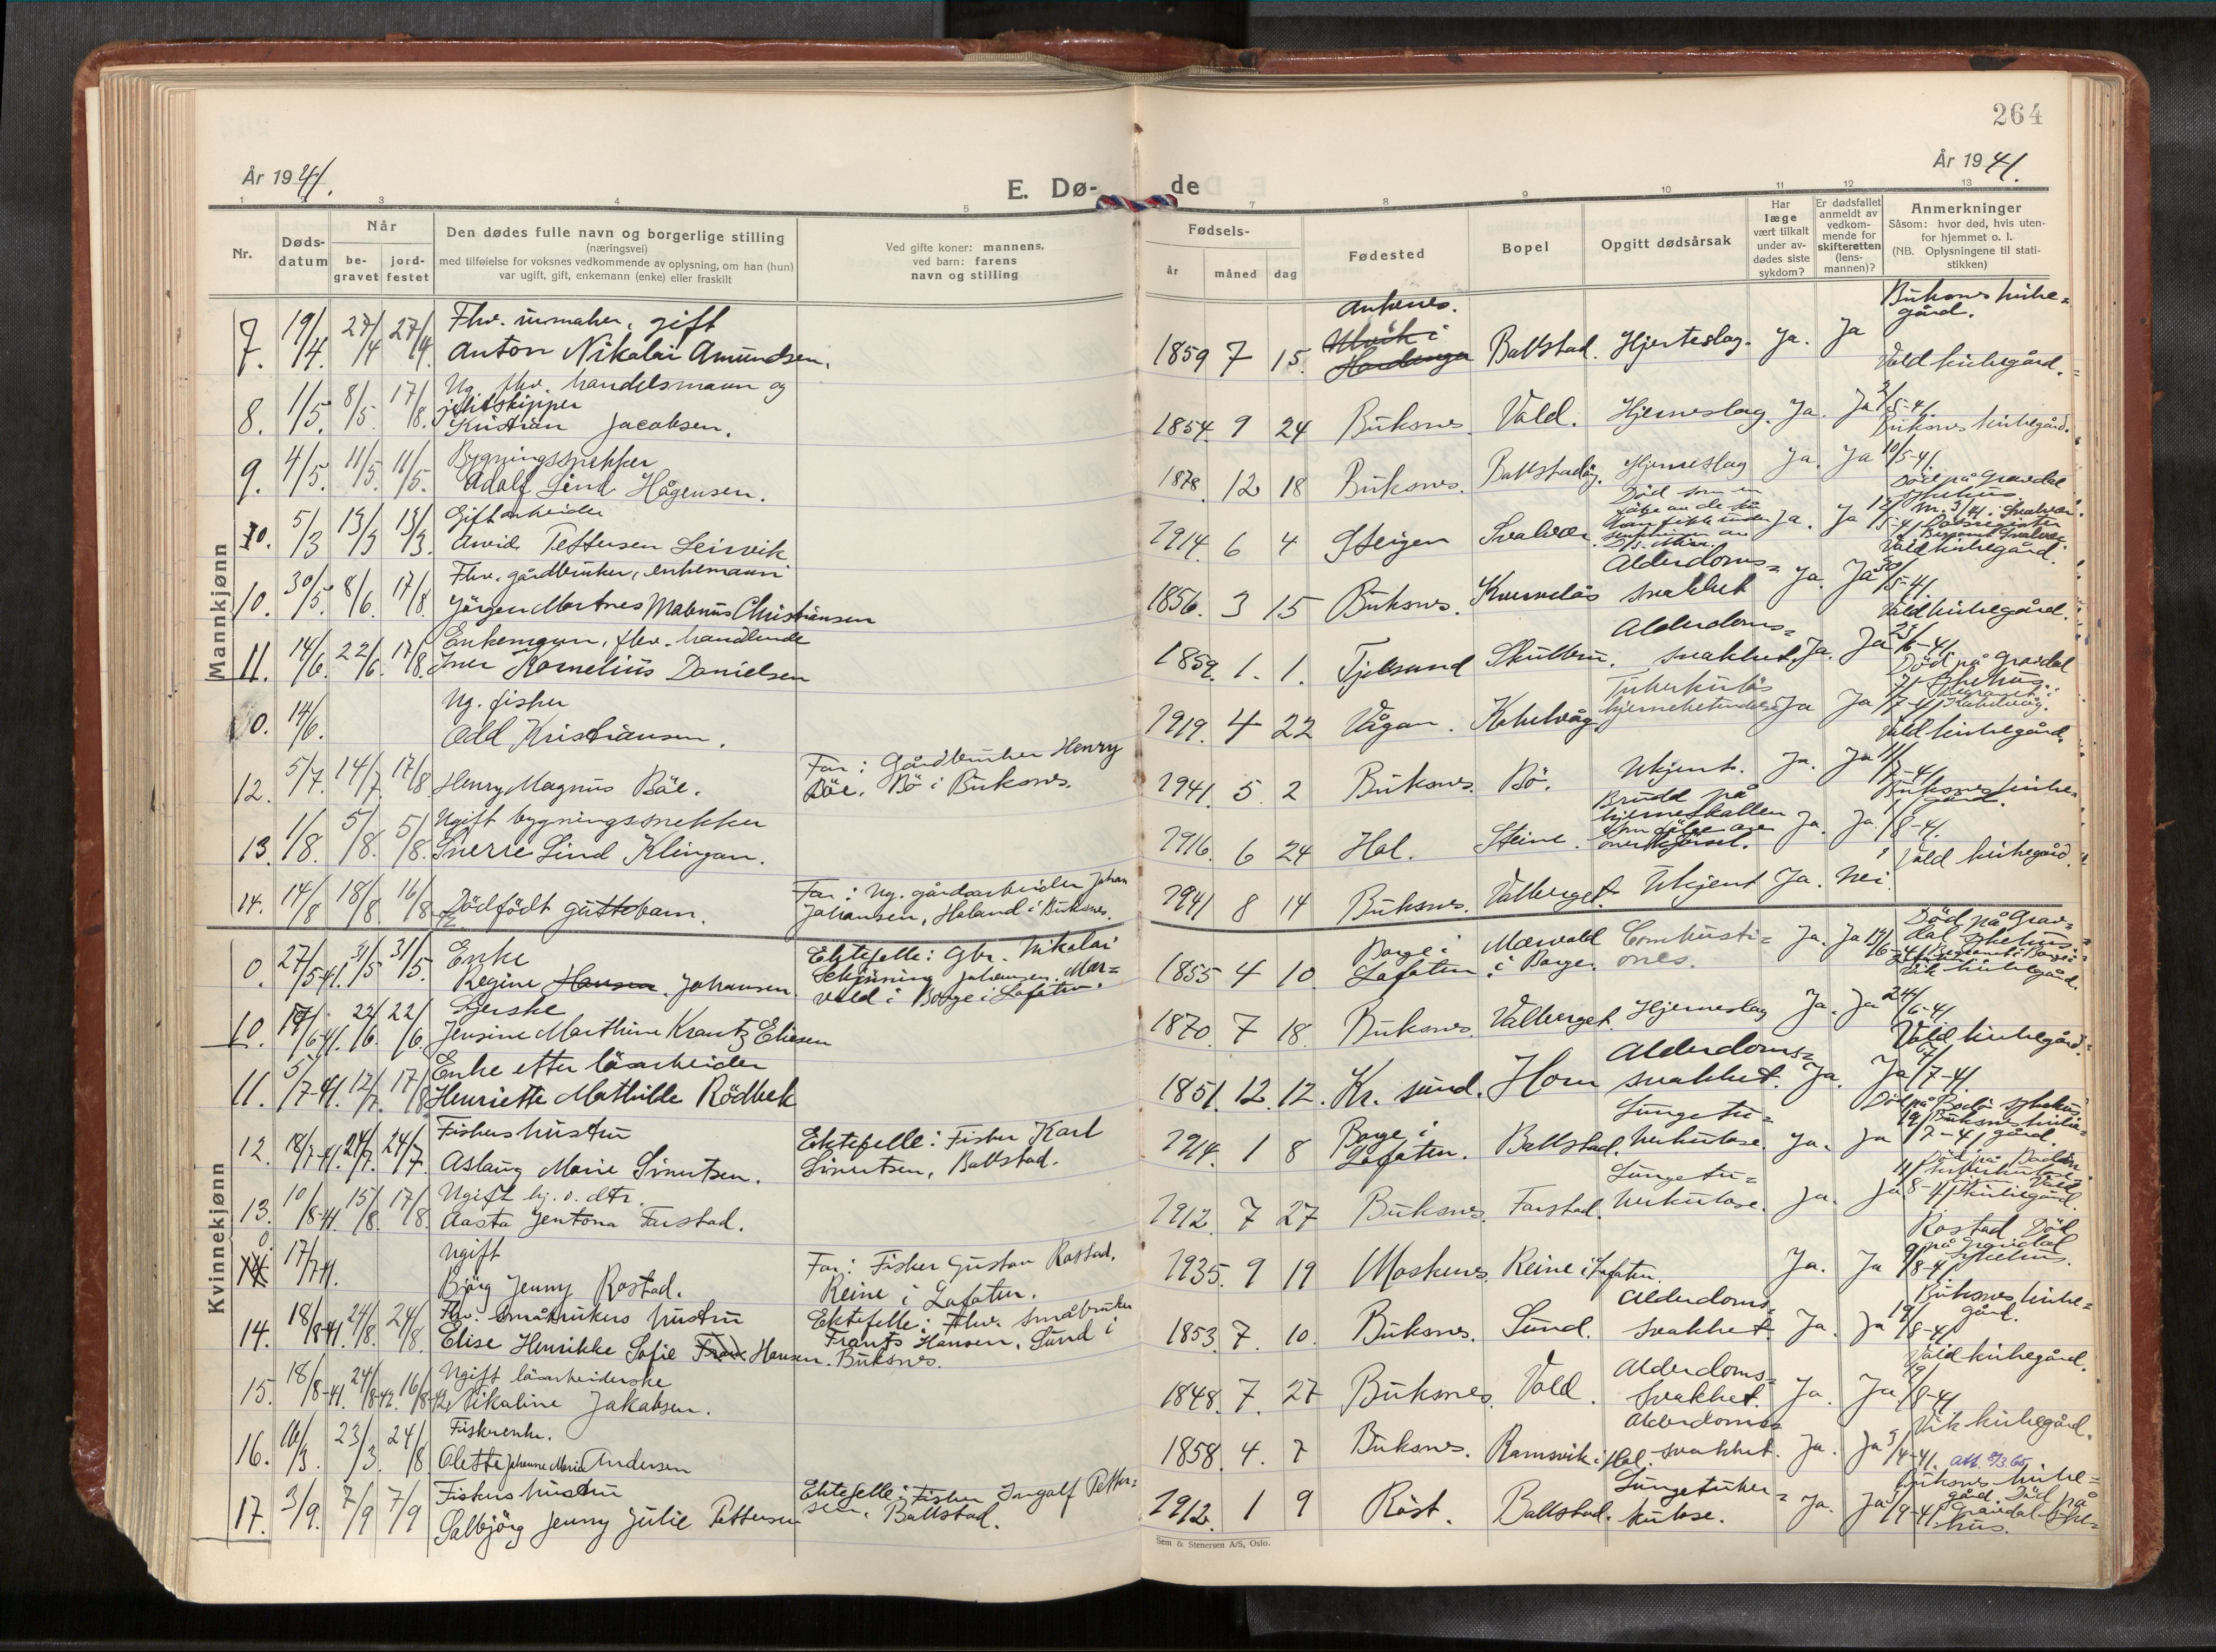 264
År 1941.
År 1941.
E. Dø-
de
1 3 4 5 7 8 9 10 11 12 13
Nr.
Døds-
datum
Når
be-
gravet
jord-
festet
Den dødes fulle navn og borgerlige stilling
(næringsvei)
med tilføielse for voksnes vedkommende av oplysning, om han (hun)
var ugift, gift, enkemann (enke) eller fraskilt
Ved gifte koner: mannens,
ved barn: farens
navn og stilling
Fødsels-
år måned dag
Fødested
Bopel
Opgitt dødsårsak
Har
læge
vært tilkalt
under av-
dødes siste
sykdom?
Er dødsfallet
anmeldt av
vedkom-
mende for
skifteretten
(lens-
mannen)?
Anmerkninger
Såsom: hvor død, hvis uten-
for hjemmet o. l.
(NB. Oplysningene til stati-
stikken)
Mannkjønn
7. 19/4 27/4 27/4 Fhv. urmaker, gift
Anton Nikolai Amundsen.
1859 7 15. Ankenes. Ulvik i
Hardanger Ballstad. Hjerteslag. Ja. Ja Buksnes kirke=
gård.
8. 1/5. 8/5. 17/8. Ug. fhv. handelsmann og
jektskipper
Kristian Jacobsen.
1854. 9 24 Buksnes. Vold. Hjerneslag. Ja. Ja 2/5-41. Vold kirkegård.
9. 4/5. 11/5. 11/5. Bygningssnekker
Adolf Lind Hågensen.
1878. 12 18 Buksnes. Ballstadöy. Hjerneslag Ja. Ja 10/5-41. Buksnes kirkegård.
10. 5/3 13/3 13/3. Gift arbeider
Arvid Pettersen Leirvik
1914. 6 4 Steigen Svolvær. Död som en
følge av de
Ja. Ja 12/5-41 Död på Gravdal
sykehus
Nr. 3/41. Svolvær.
Dødsregister
10. 30/5. 8/6. 17/8. Fhv. gårdbruker, enkemann
Jörgen Martnes Mabnus Christiansen
1856. 3 15 Buksnes. Kvernelös Alderdoms=
svakhet Ja. Ja 30/5-41. Vold kirkegård.
11. 14/6. 22/6. 17/8. Enkemann, fhv. handlende
Iver Kornelius Danielsen
1859. 1. 1. Tjelsund Skulbru. Alderdoms=
svakhet. Ja. Ja 25/6-41. Vold kirkegård.
0. 14/6. Ug. fisker
Odd Kristiansen.
1919. 4 22 Vågan. Kabelvåg Tuberkuløs
hjernebetendelse Ja Ja 7/7-41 Död på Gravdal
sykehus.
Begravet i
Kabelvåg.
12. 5/7. 14/7. 17/8 Henry Magnus Böe.
Far: Gårdbruker Henry
Böe. Bö i Buksnes.
1941. 5. 2 Buksnes. Bö. Ukjent. Ja. Ja 11/7-41 Vold kirkegård.
13. 1/8. 5/8. 5/8. Ugift bygningssnekker
Sverre Lind Klingan.
1916. 6 24 Hol. Steine. Brudd på
hjerneskallen
som følge av
overkjørsel. Ja. Ja. 1/8-41. Buksnes kirke=
gård.
14. 14/8 18/8. 16/8 Dödfödt guttebarn.
Far: Ug. gårdsarbeider Johan
Johansen, Holand i Buksnes.
1941 8 14 Buksnes. Valberget. Ukjent Ja. Nei. Vold kirkegård.
Kvinnekjønn
0. 27/5-41. 31/5 31/5. Enke
Regine Hansen. Johansen.
Ektefelle: Gbr. Nikolai
Schjöning Johansen. Mær=
vold i Borge i Lofoten.
1855 4 10 Borge i
Lofoten. Mærvold
i Borge. Combusti=
ones. Ja. Ja 19/6-41 Död på Grav=
dal sykehus.
Begravet i Borge
10. 19/6-41. 22/6. 22/6. Syerske
Jensine Marthine Krantz Eliesen
1870. 7 18. Buksnes. Valberget. Hjerneslag Ja. Ja 24/6-41 Vik kirkegård.
11. 5/7-41. 12/7. 17/8 Enke etter lösarbeider
Henriette Mathilde Rödbek
1851. 12. 12. Kr. sund. Horn Alderdoms=
svakhet. Ja. Ja 7/7-41. Vold kirkegård.
12. 18/7-41. 24/7. 24/7. Fiskershustru
Aslaug Marie Sivertsen.
Ektefelle: Fisker Karl
Sivertsen, Ballstad.
1914. 1 8 Borge i
Lofoten. Ballstad. Lungetu=
berkulose. Ja. Ja 19/7-41 Död på Bodö sykehus.
Buksnes kirke=
gård.
13. 10/8-41. 15/8. 17/8. Ugift hj. v. dtr.
Aasta Jentona Farstad.
1912. 7 27 Buksnes. Farstad. Lungetu=
berkulose. Ja. Ja 11/8-41 Död på
Vold
kirkegård.
0 17/7-41. Ugift
Björg Jenny Rostad.
Far: Fisker Gustav Rostad.
Reine i Lofoten.
1935. 9 19 Moskenes. Reine i Lofoten. Ja. Ja 9/8-41 Rostad Död
på Gravdal
sykehus.
14. 18/8-41. 24/8. 24/8. Fhv. småbrukers hustru
Elise Henrikke Sofie Frank Hansen.
Ektefelle: Fhv. småbruker
Frants Hansen, Sund i
Buksnes.
1853. 7. 10. Buksnes. Sund. Alderdoms=
svakhet. Ja. Ja 19/8-41 Buksnes kirke=
gård.
15. 18/8-41. 24/8-42. 16/8-42 Ugift lösarbeiderske
Nikoline Jakobsen.
1848. 7. 27 Buksnes. Vold. Alderdoms=
svakhet. Ja. Ja 19/8-41 Vold kirkegård.
16. 16/3. 23/3. 24/8 Fiskerenke.
Olette Johanne Maria Andersen
1858. 4. 7 Buksnes. Ramsvik i Hol. Alderdoms
svakhet. Ja. Ja 5/4-41. Vik kirkegård.
17. 3/9. 7/9 7/9 Fiskers hustru
Solbjörg Jenny Julie Pettersen
Ektefelle: Fisker Ingolf Petter=
sen, Ballstad.
1912. 1 9 Röst. Ballstad. Lungetuber=
kulose. Ja. Ja /9-41 Buksnes kirke=
gård. Död på
Gravdal syke=
hus.
Sem & Stenersen A/S, Oslo.